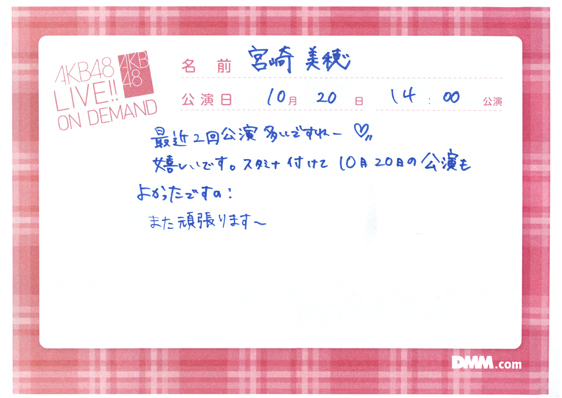 AKB48
LIVE!!
ON DEMAND
AKB
48
名 前 宮崎 美穂
公演日 10月 20日 14:00 公演
最近2回公演多いですねー♡
嬉しいです。スタミナ付けて10月20日の公演も
よかったですの!
また頑張ります〜
DMM.com